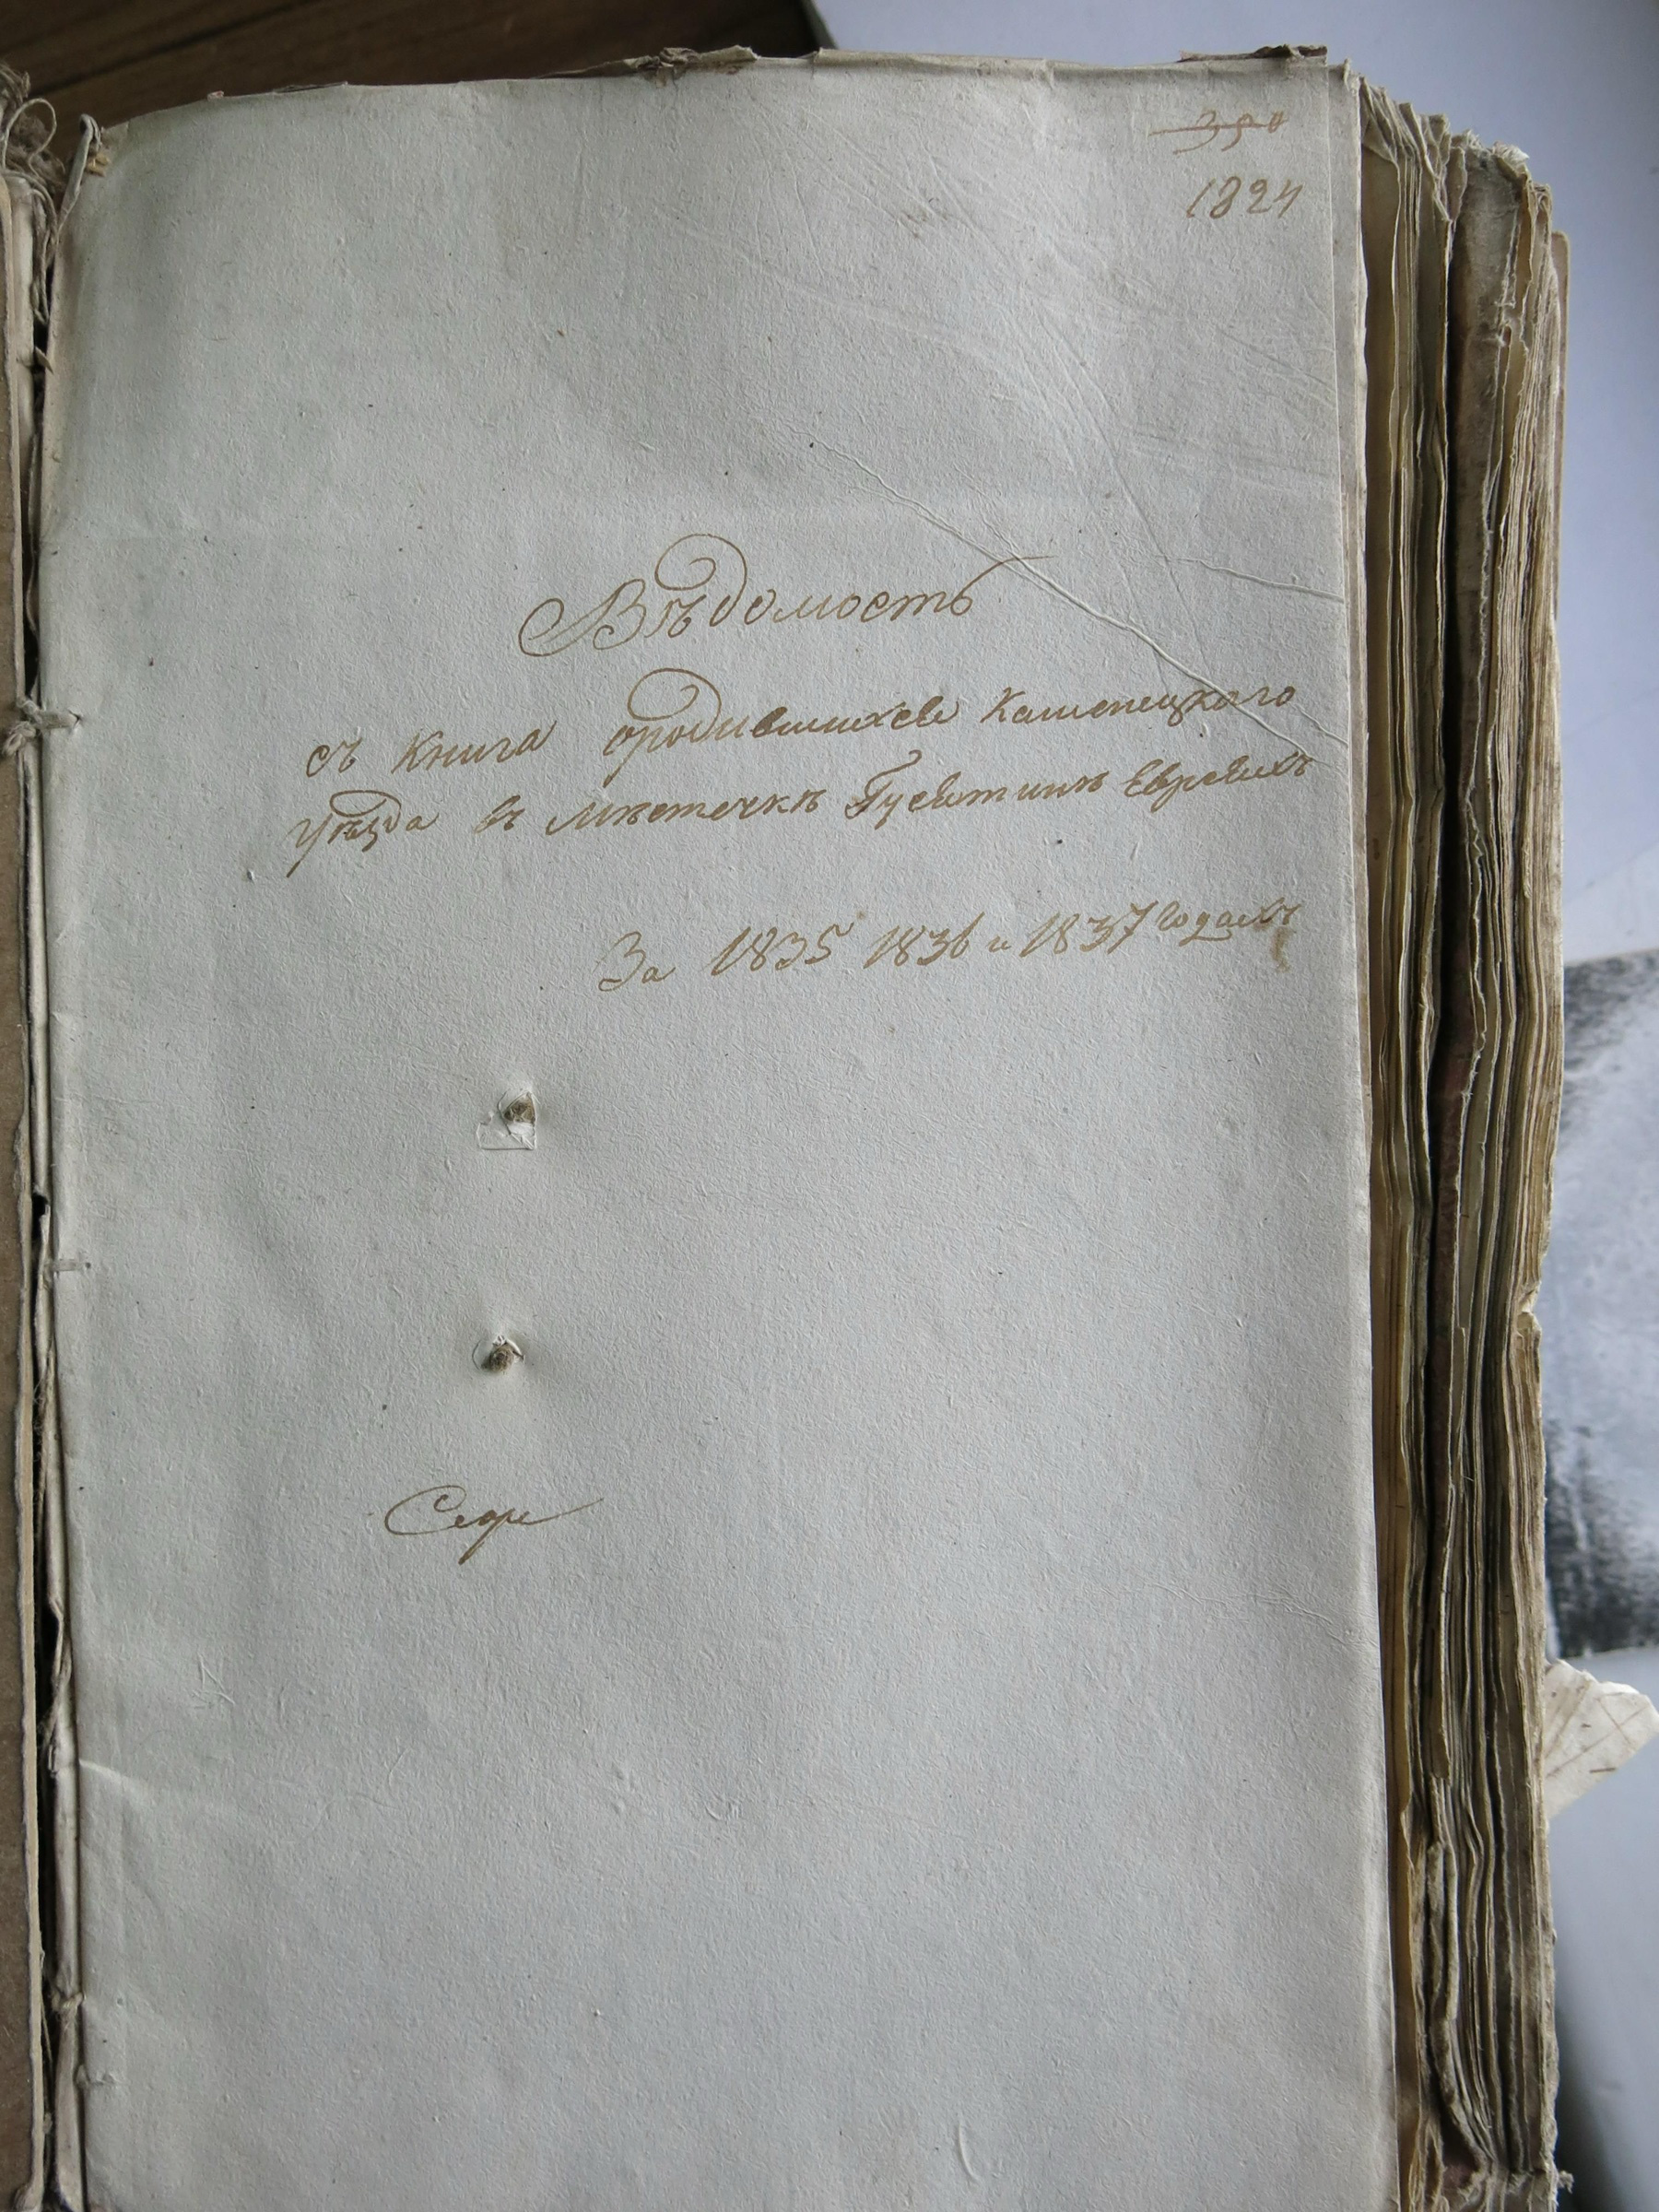 350
1824
Вѣдомость
съ Книга ородившихсе Каменецкого
Уѣзда въ мѣстечкѣ Гусятинѣ Евреихъ
За 1835 1836 и 1837 годахъ